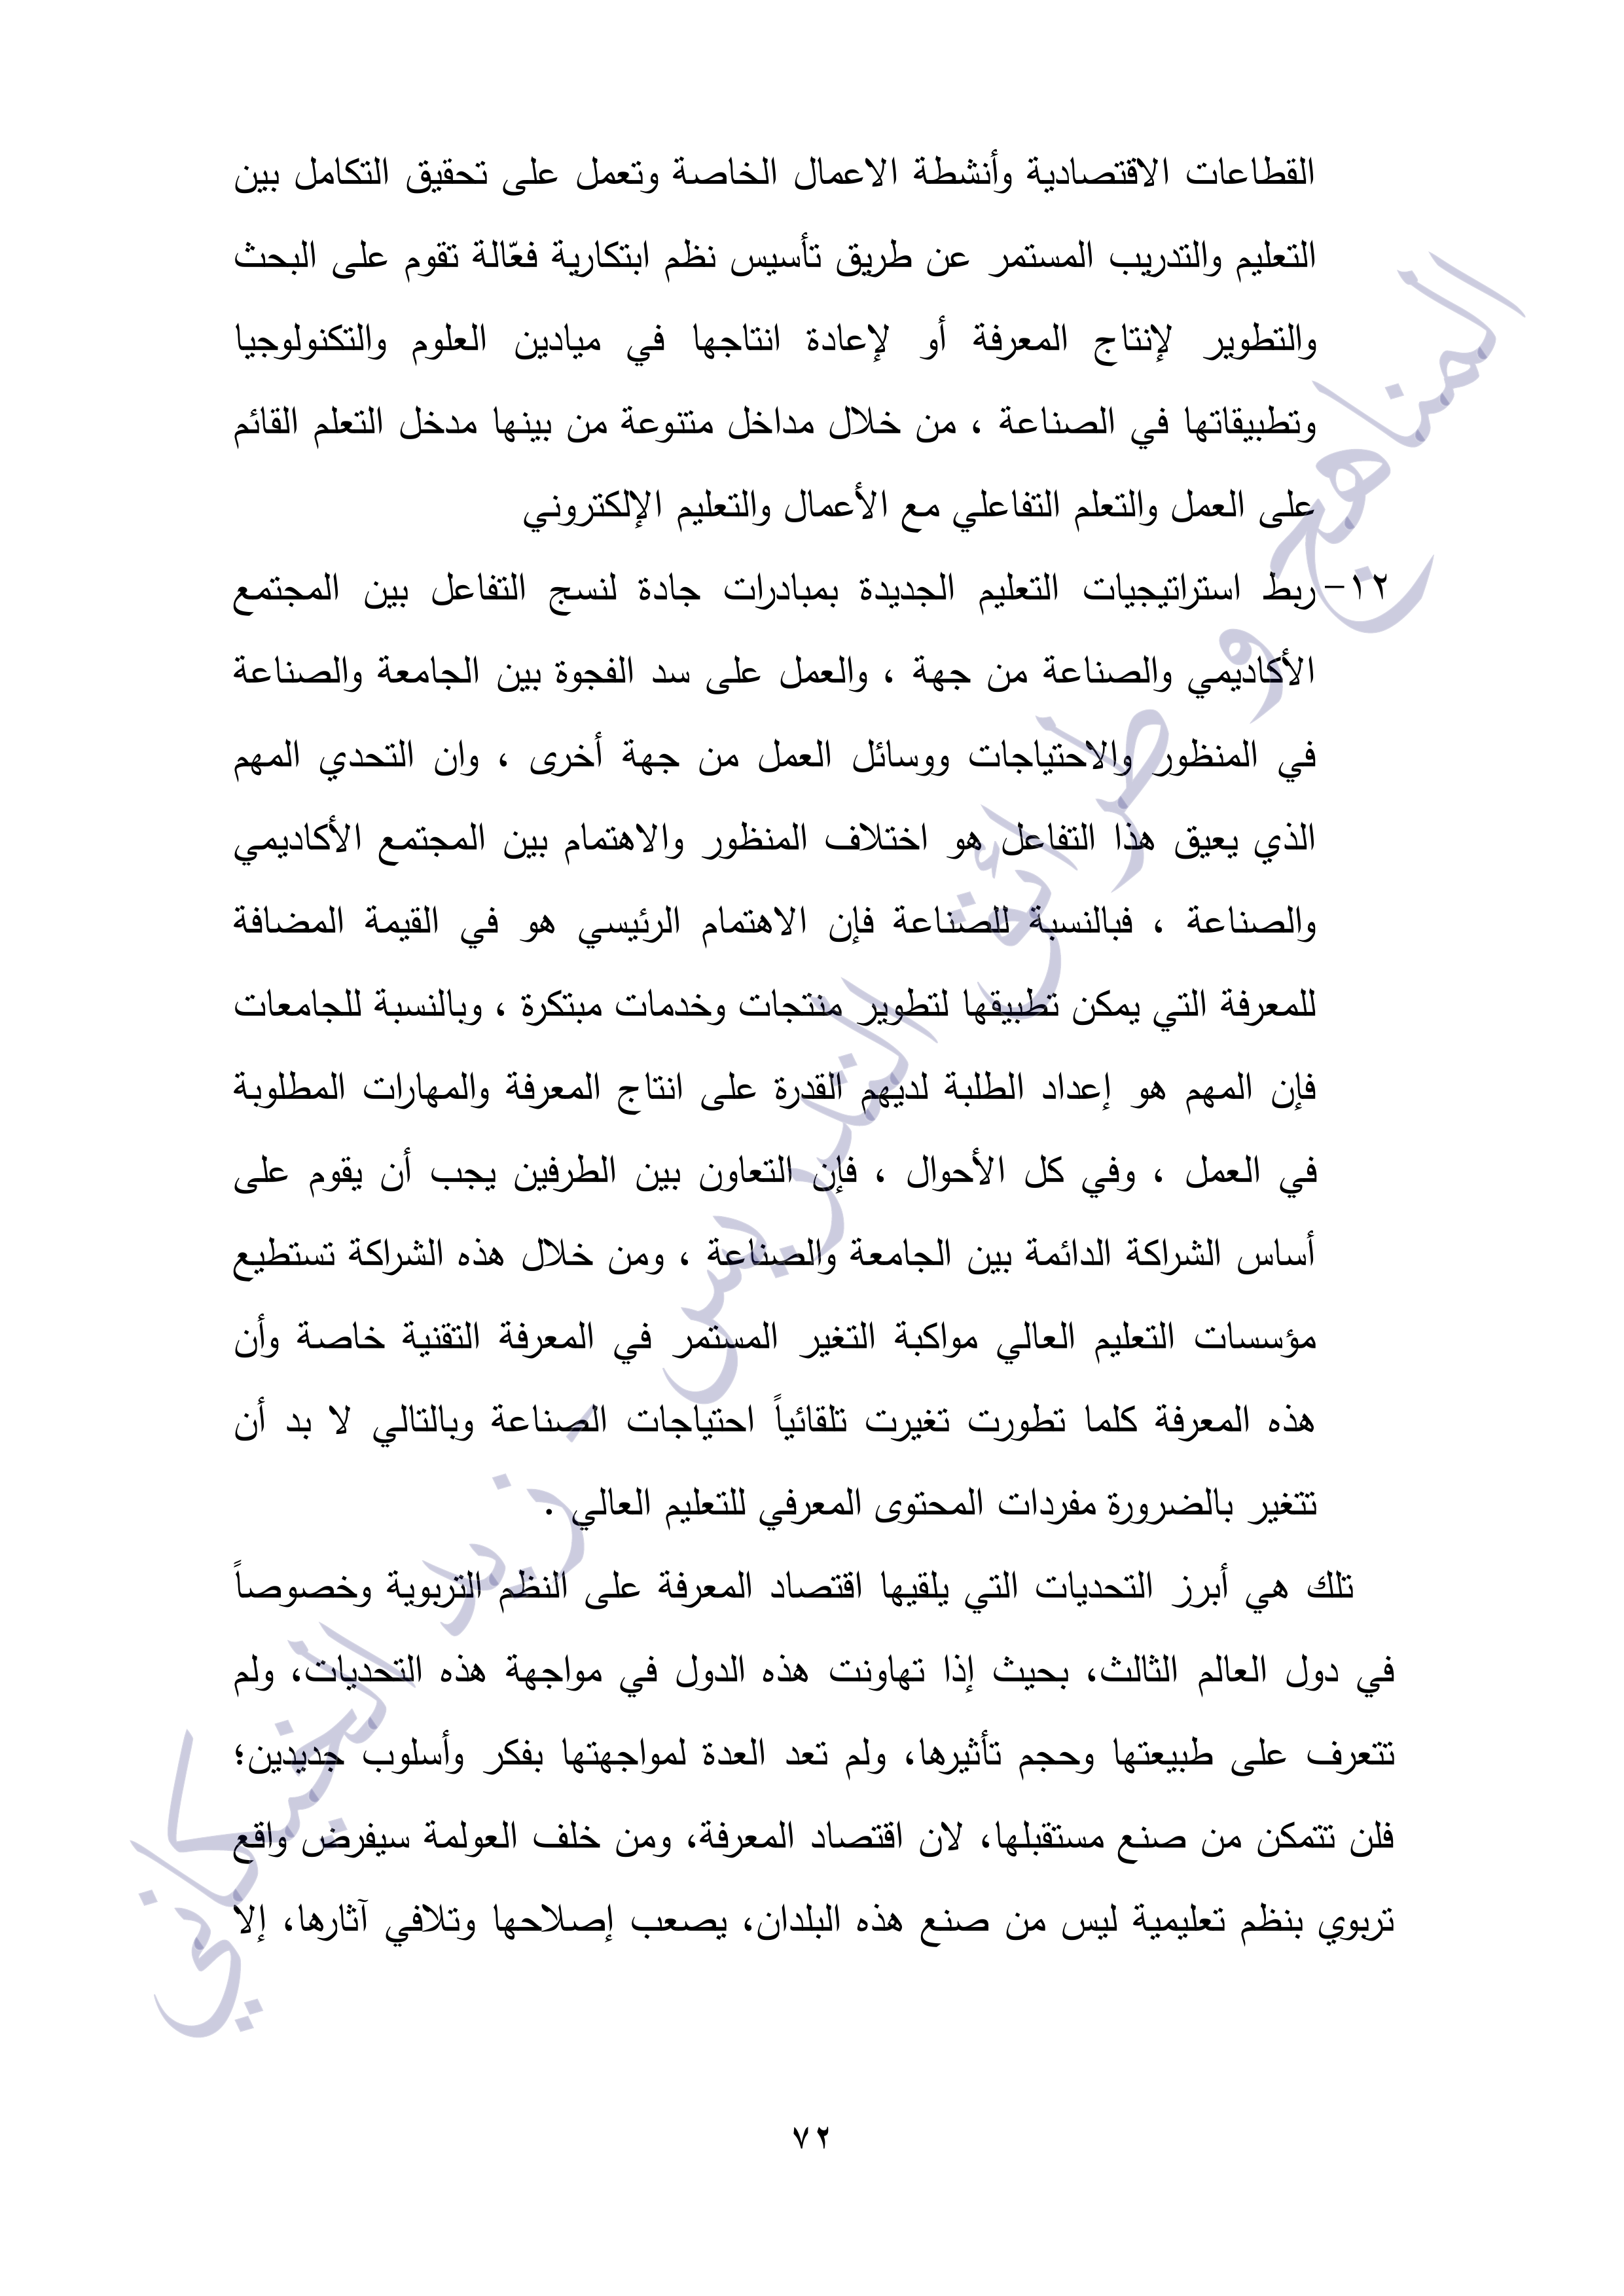 القطاعات الاقتصادية وأنشطة الاعمال الخاصة وتعمل على تحقيق التكامل بين
التعليم والتدريب المستمر عن طريق تأسيس نظم ابتكارية فعّالة تقوم على البحث
والتطوير لإنتاج المعرفة أو لإعادة انتاجها في ميادين العلوم والتكنولوجيا
وتطبيقاتها في الصناعة ، من خلال مداخل متنوعة من بينها مدخل التعلم القائم
على العمل والتعلم التفاعلي مع الأعمال والتعليم الإلكتروني
١٢- ربط استراتيجيات التعليم الجديدة بمبادرات جادة لنسج التفاعل بين المجتمع
الأكاديمي والصناعة من جهة ، والعمل على سد الفجوة بين الجامعة والصناعة
في المنظور والاحتياجات ووسائل العمل من جهة أخرى ، وان التحدي المهم
الذي يعيق هذا التفاعل هو اختلاف المنظور والاهتمام بين المجتمع الأكاديمي
والصناعة ، فبالنسبة للصناعة فإن الاهتمام الرئيسي هو في القيمة المضافة
للمعرفة التي يمكن تطبيقها لتطوير منتجات وخدمات مبتكرة ، وبالنسبة للجامعات
فإن المهم هو إعداد الطلبة لديهم القدرة على انتاج المعرفة والمهارات المطلوبة
في العمل ، وفي كل الأحوال ، فإن التعاون بين الطرفين يجب أن يقوم على
أساس الشراكة الدائمة بين الجامعة والصناعة ، ومن خلال هذه الشراكة تستطيع
مؤسسات التعليم العالي مواكبة التغير المستمر في المعرفة التقنية خاصة وأن
هذه المعرفة كلما تطورت تغيرت تلقائياً احتياجات الصناعة وبالتالي لا بد أن
تتغير بالضرورة مفردات المحتوى المعرفي للتعليم العالي .
تلك هي أبرز التحديات التي يلقيها اقتصاد المعرفة على النظم التربوية وخصوصاً
في دول العالم الثالث، بحيث إذا تهاونت هذه الدول في مواجهة هذه التحديات، ولم
تتعرف على طبيعتها وحجم تأثيرها، ولم تعد العدة لمواجهتها بفكر وأسلوب جديدين؛
فلن تتمكن من صنع مستقبلها، لان اقتصاد المعرفة، ومن خلف العولمة سيفرض واقع
تربوي بنظم تعليمية ليس من صنع هذه البلدان، يصعب إصلاحها وتلافي آثارها، إلا
٧٢
المناهج و طرائق التدريس - زيد الخيكاني